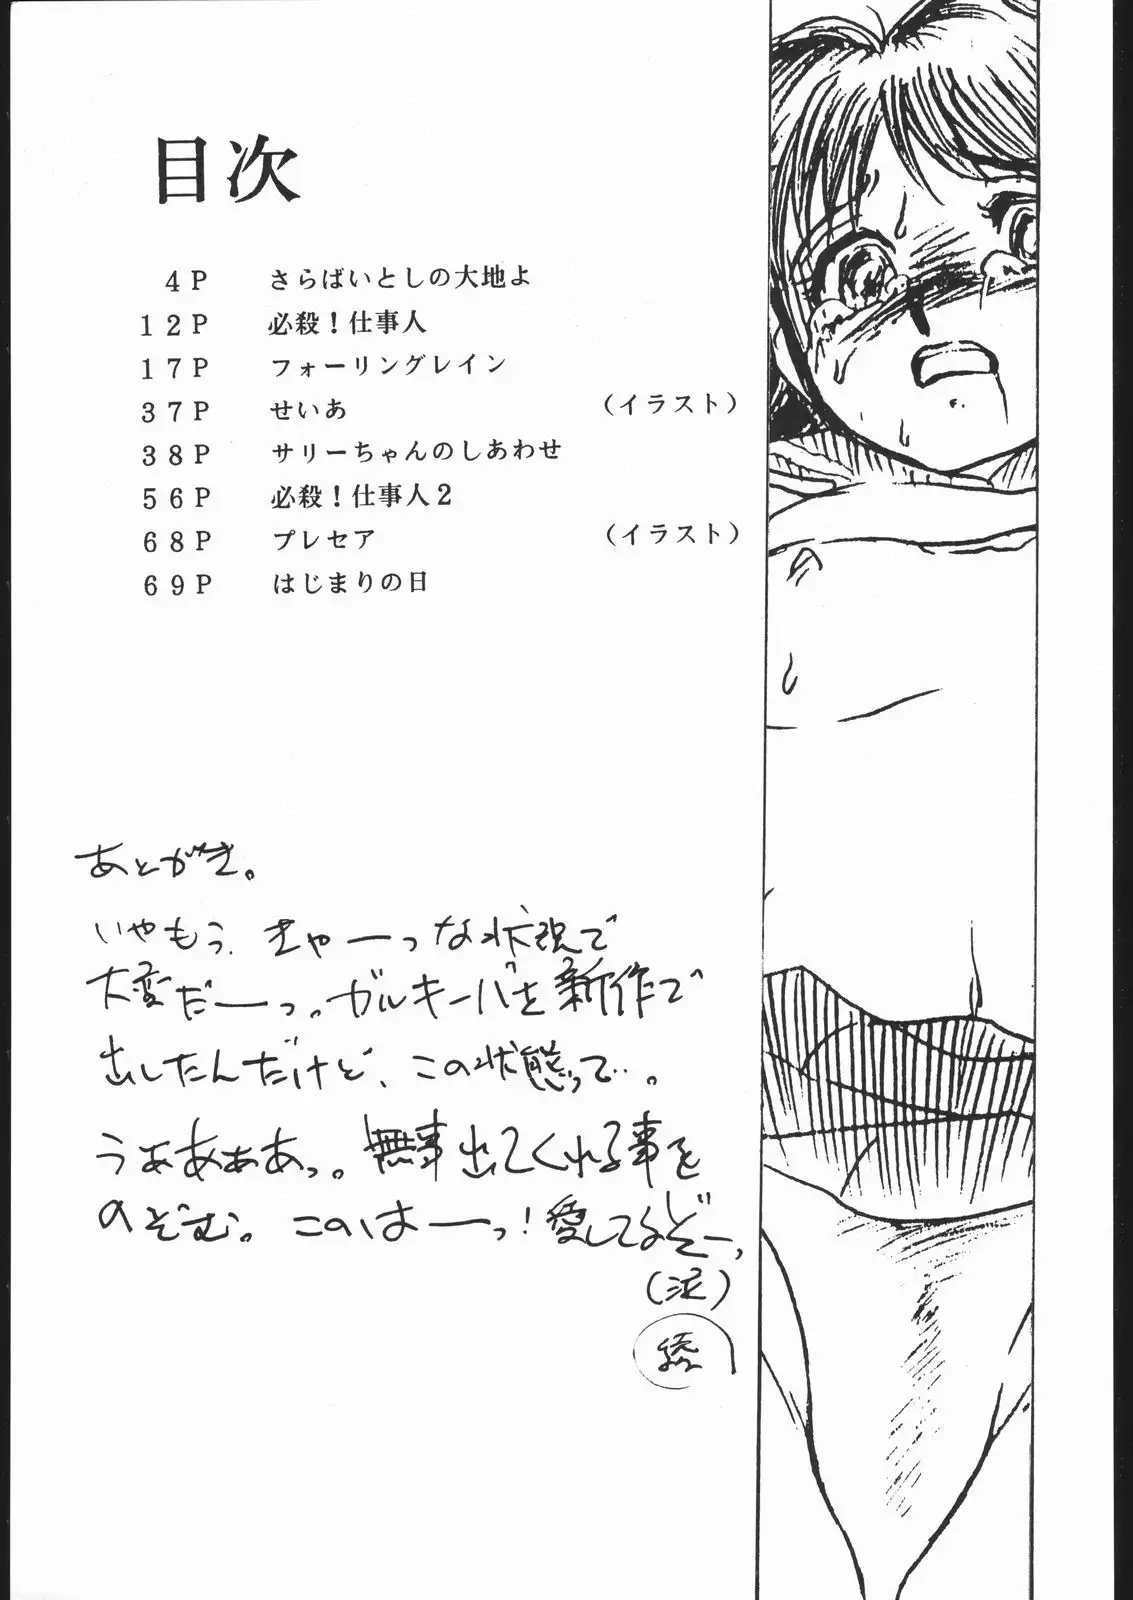 目次
4P さらばいとしの大地よ
12P 必殺！仕事人
17P フォーリングレイン
37P せいあ （イラスト）
38P サリーちゃんのしあわせ
56P 必殺！仕事人2
68P プレセア （イラスト）
69P はじまりの日
あとがき。
いやもう、きゃーっな状況で
大変だーっ。ガルキーバを新作で
出したんだけど、この状態って…。
うぁあぁあっ。無事出てくれる事を
のぞむ。このはーっ！愛してるぞー、
（泥）